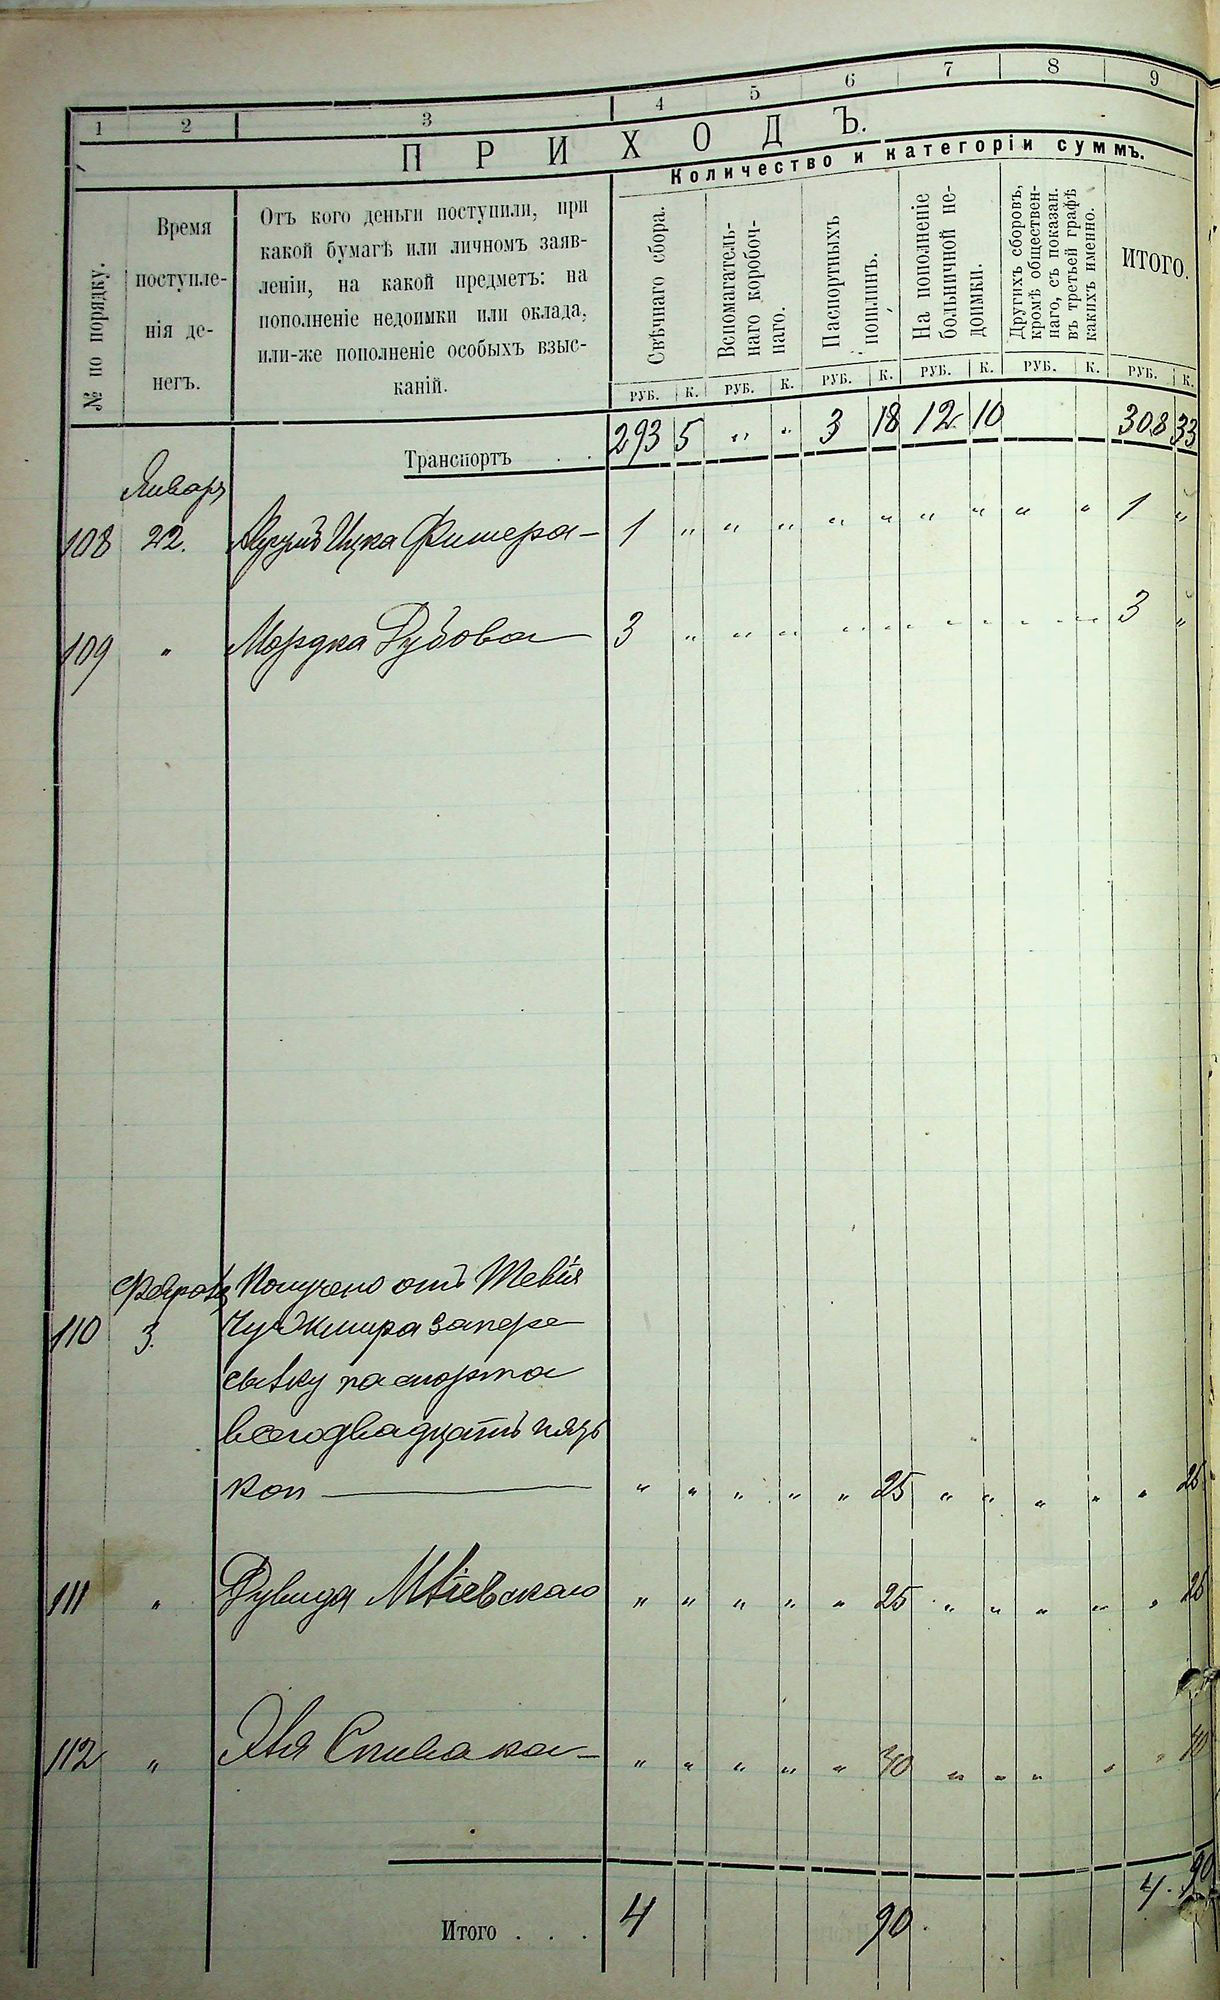 1 2 3 4 5 6 7 8 9
ПРИХОДЪ.
Количество и категоріи суммъ.
№ по порядку.
Время
поступле-
нія де-
негъ.
Отъ кого деньги поступили, при
какой бумагѣ или личномъ заяв-
леніи, на какой предметъ: на
пополненіе недоимки или оклада,
или-же пополненіе особыхъ взыс-
каній.
Свѣчнаго сбора.
Вспомагатель-
наго коробоч-
наго.
Паспортныхъ
пошлинъ.
На пополненіе
больничной не-
доимки.
Другихъ сборовъ,
кромѣ обществен-
наго, съ показан.
въ третьей графѣ
какихъ именно.
ИТОГО.
РУБ. К. РУБ. К. РУБ. К. РУБ. К. РУБ. К. РУБ. К.
Транспортъ . . 293 5 " " 3 18 12 10 308 33
Январь
108 22. Ицка Фишера — 1 " " " " " " " " " 1 "
109 " Мордка Дубова — 3 " " " " " " " " " 3 "
Февраль Получено отъ Тевія
110 3. Чуджмира за пере
сылку паспорта
всего двадцать пять
коп — " " " " " 25 " " " " " 25
111 " Дувида " " " " " 25 " " " " " 25
112 " Спивака — " " " " " 40 " " " " " 40
Итого . . . 4 90. 4. 90